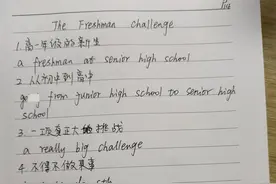 The Freshman Challenge
1.高一年级的新生
a freshman at senior high school
2.从初中到高中
from junior high school to senior high
school
3.一项真正大的挑战
a really big challenge
4.不得不做某事